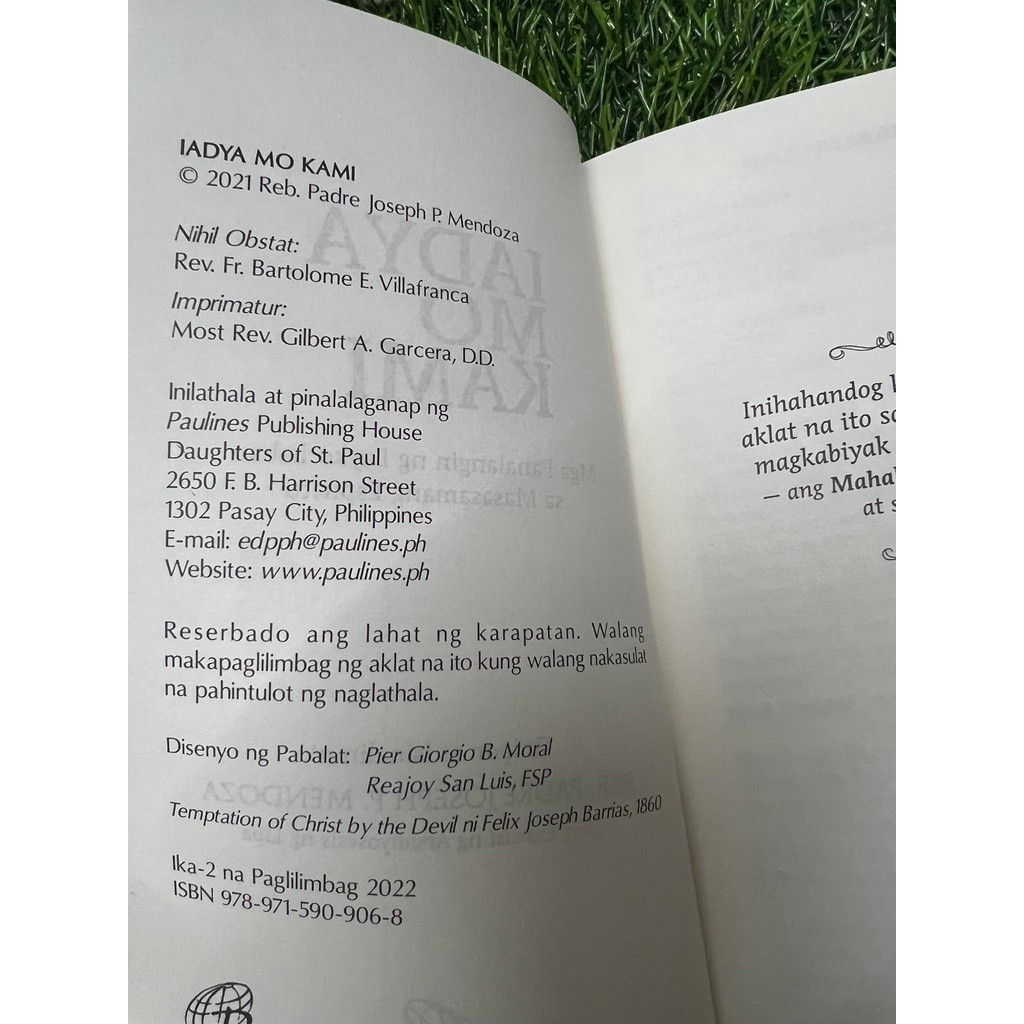 IADYA MO KAMI
© 2021 Reb. Padre Joseph P. Mendoza
Nihil Obstat:
Rev. Fr. Bartolome E. Villafranca
Imprimatur:
Most Rev. Gilbert A. Garcera, D.D.
Inilathala at pinalalaganap ng
Paulines Publishing House
Daughters of St. Paul
2650 F. B. Harrison Street
1302 Pasay City, Philippines
E-mail: edpph@paulines.ph
Website: www.paulines.ph
Reserbado ang lahat ng karapatan. Walang
makapaglilimbag ng aklat na ito kung walang nakasulat
na pahintulot ng naglathala.
Disenyo ng Pabalat: Pier Giorgio B. Moral
Reajoy San Luis, FSP
Temptation of Christ by the Devil ni Felix Joseph Barrias, 1860
Ika-2 na Paglilimbag 2022
ISBN 978-971-590-906-8
Inihahandog
aklat na ito
magkabiyak
– ang
at